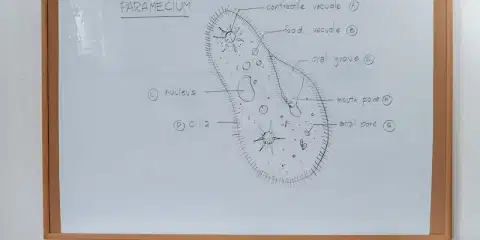 PARAMECIUM
contractile vacuole A
food vacuole B
oral grove
C nucleus
mouth pore
cilia
anal pore